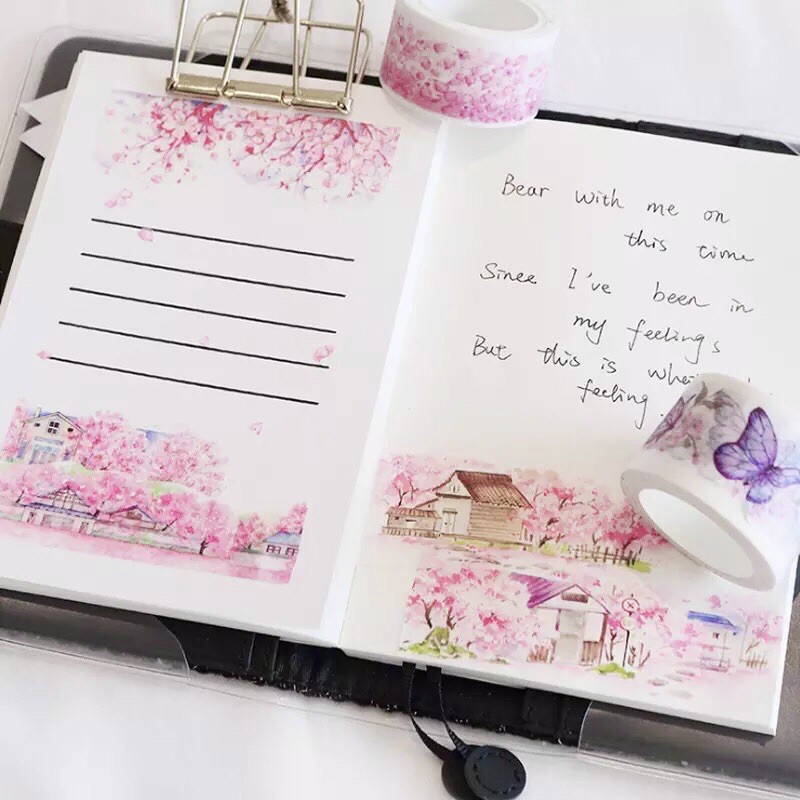 Bear with me on
this time
Since I've been in
my feelings
But this is
feeling.